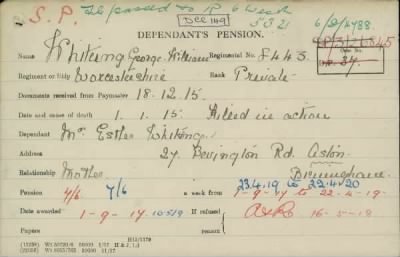 S.P. To be passed to R 6 Week
DEC 1919 5.3.21 6/D/4788
DEFENDANT'S PENSION.
Name Whiting George William Regimental No. 8443
Regiment or Ship Worcestershire Rank Private
Documents received from Paymaster 18.12.15.
Date and cause of death 1.1.15. Killed in action
Dependant Mrs Esther Whiting
Address 27 Bevington Rd. Aston
Relationship Mother Birmingham
23.4.19 to 22.4.20
Pension 4/6 7/6 a week from 1-9-17 to 22-4-19
Date awarded 1-9-17 If refused 16-5-18
Papers reason